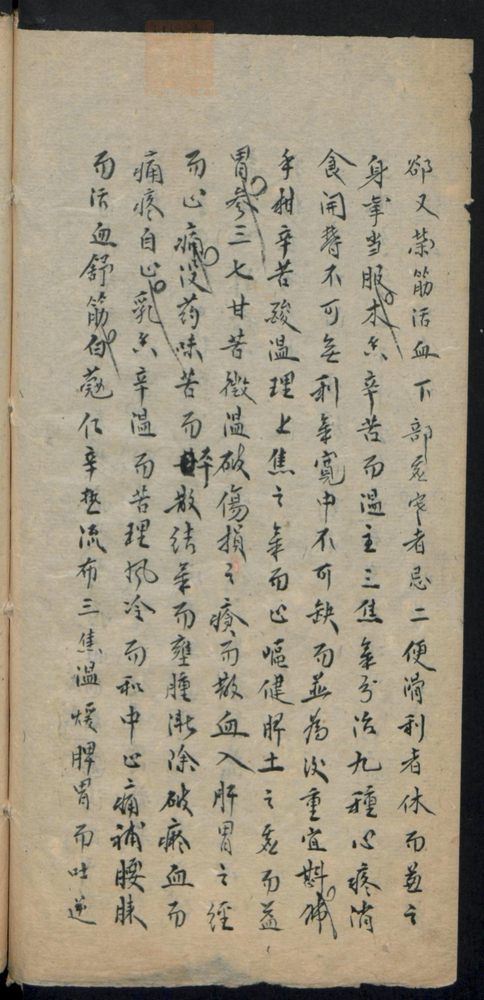 郤又荣筋活血下部虚寒者忌二便滑利者休而薑之
身辜当服木香辛苦而温主三焦氣分治九種心疼消
食開鬱不可無利氣寛中不可缺而並為後重宜斟
辛甜辛苦酸温理上焦之氣而止嘔健脾土之虚而益
胃參三七甘苦微温破傷損之瘀而散血入肝胃之經
而止痛没药味苦而辛散結氣而壅腫漸除破瘀血而
痛疼自止乳香辛温而苦理風冷而和中止痛補腰膝
而活血舒筋白蔻仁辛熱流布三焦温煖脾胃而吐逆